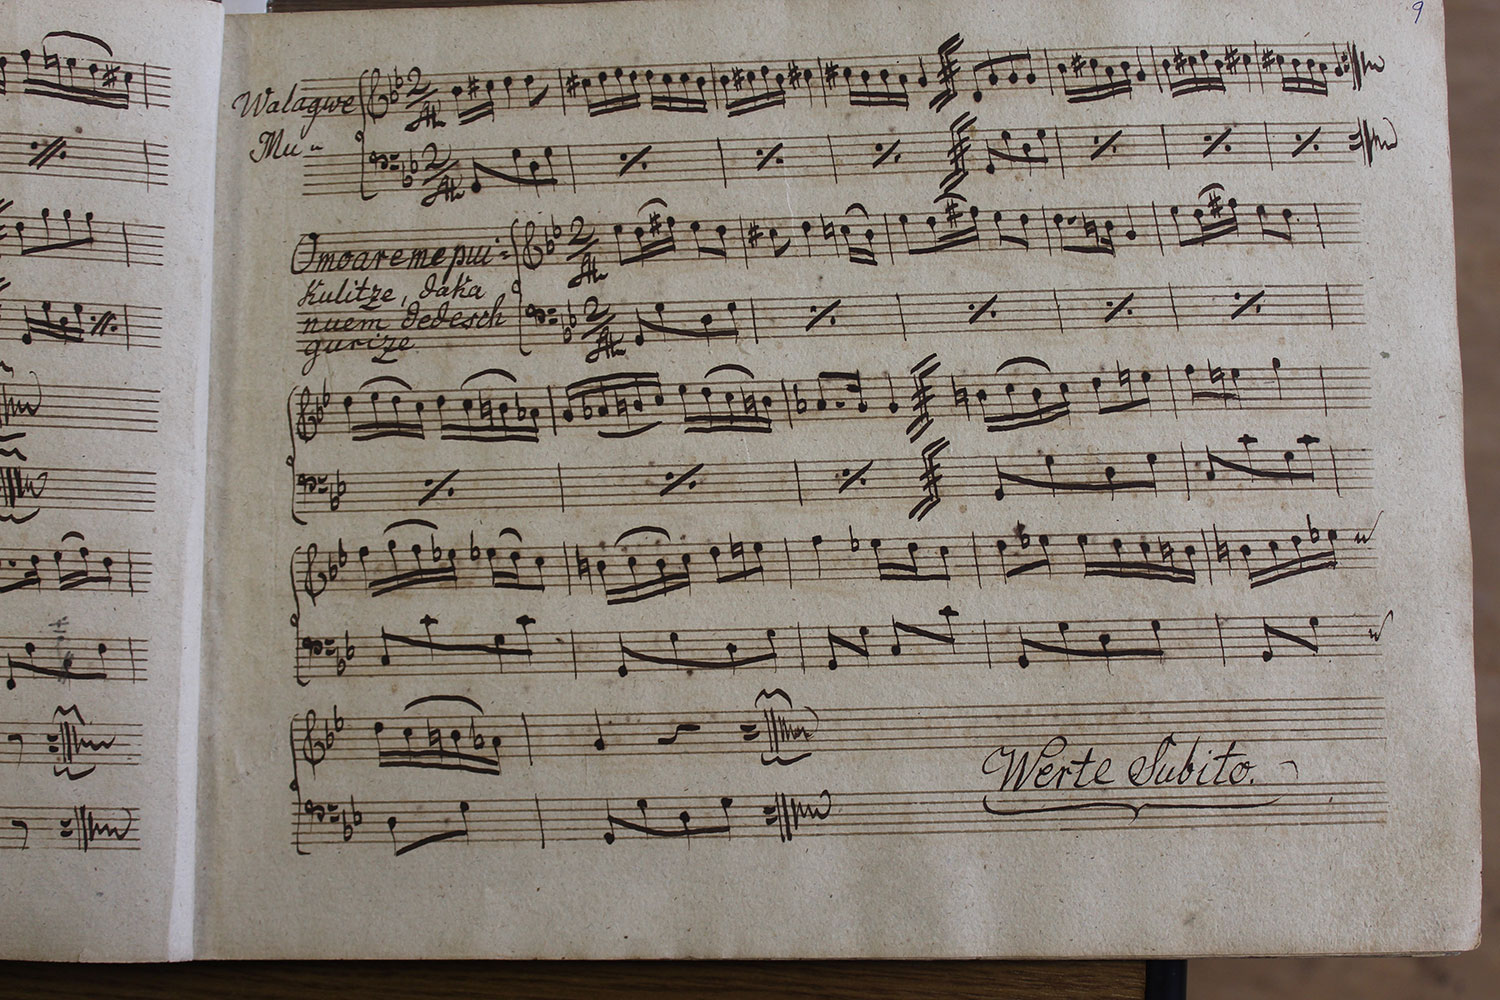 9
Walagwe
Mu -
Omoaremepui=
Kulitze, daka
nuem dedesch
gurize
Werte Subito.